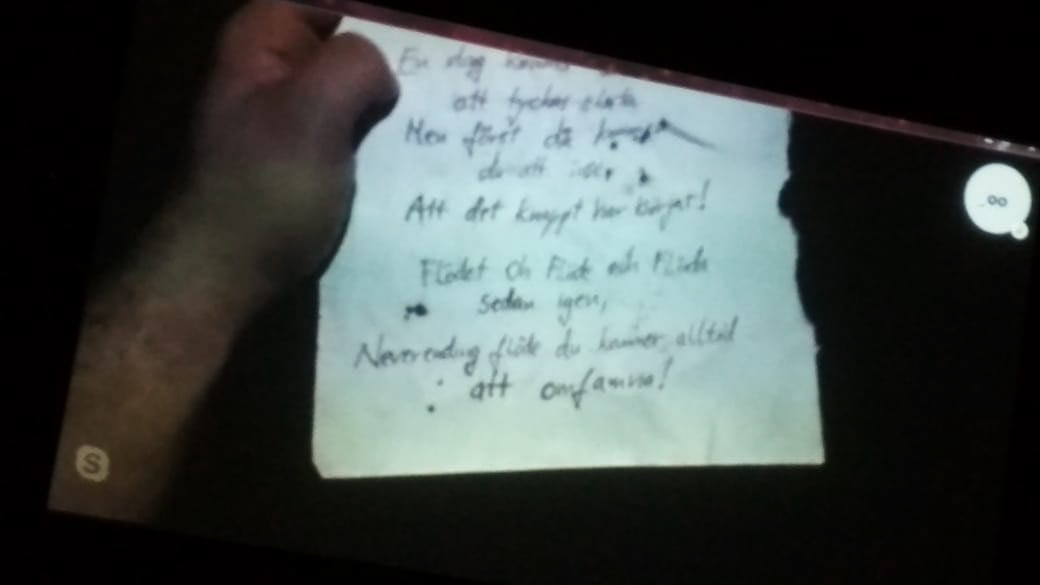 En dag
att tycka
Men först då
du att
Att det knappt har börjat!
Flödet och Flöde och Flöda
sedan igen,
Neverending flöde du kommer alltid
att omfamna!
S